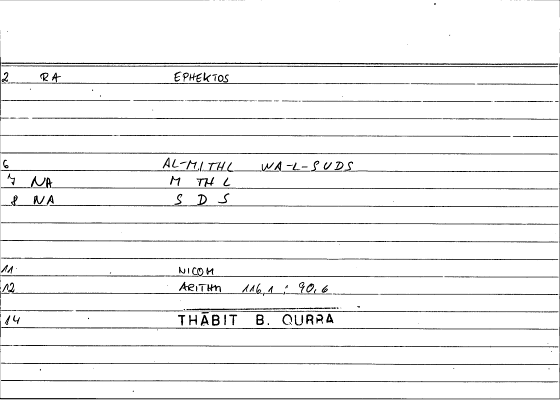 2 RA EPHEKTOS
6 AL-MITHL WA-L-SUDS
7 NA M TH L
8 NA S D S
11 NICOM
12 ARITHM 116,1 : 90,6
14 THĀBIT B. QURRA